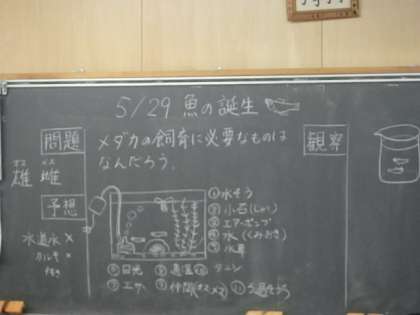 5/29 魚の誕生
問題
メダカの飼育に必要なものは
なんだろう。
オス メス
雄 雌
予想
水道水 ×
カルキ ×
観察
①水そう
②小石(じゃり)
③エアーポンプ
④水(くみおき)
⑤水草
⑥日光 ⑧適温 ⑩タニシ
⑦エサ ⑨仲間(オスメス)